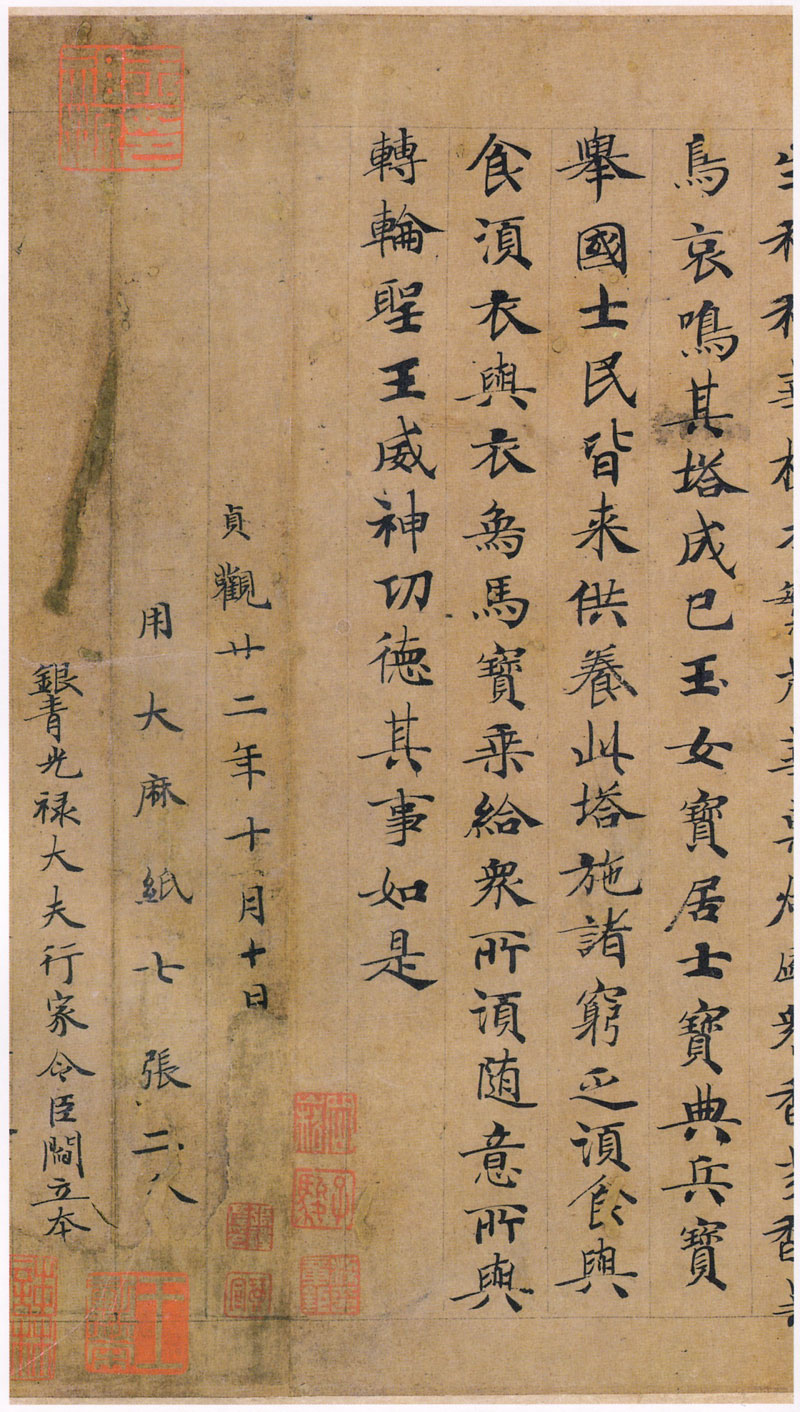 鳥哀鳴其塔成已玉女寶居士寶典兵寶
舉國士民皆来供養此塔施諸窮乏須食與
食須衣與衣象馬寶乘給眾所須随意所與
轉輪聖王威神功德其事如是
貞觀廿二年十月十日
用大麻紙七張二分
銀青光禄大夫行家令臣閻立本